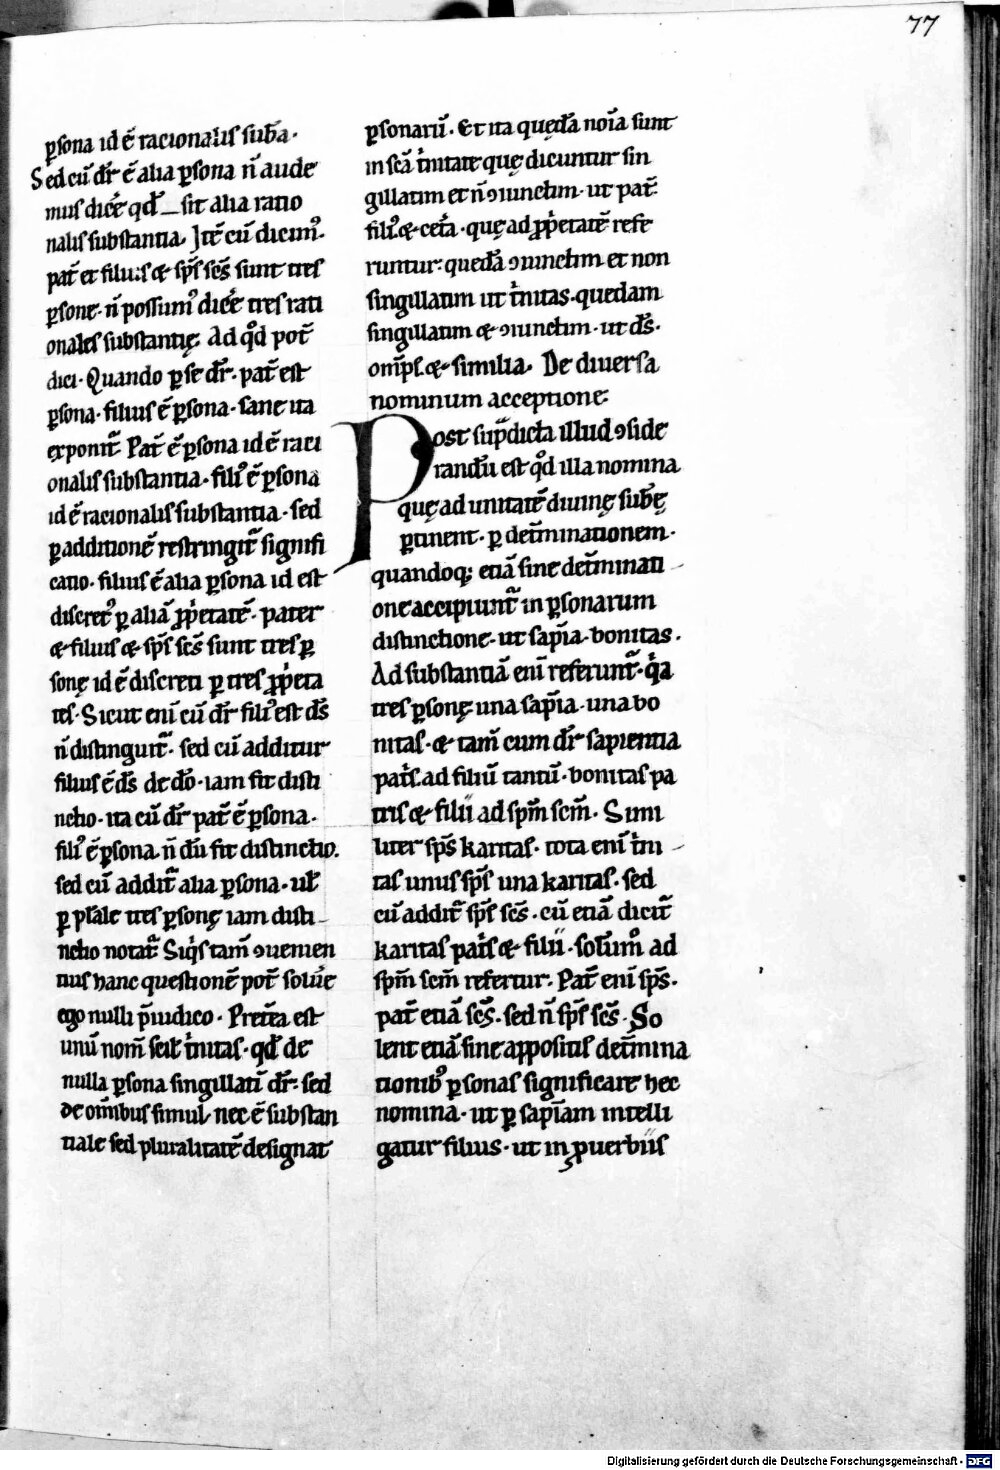 77
ꝑsona id ē racionalis sub̄a.
Sed cū dr̄ ē alia ꝑsona n̄ aude
mus dicē qđ _ sit alia ratio
nalis substantia. Itē cū dicim᷒.
pat̄ et filius & sp̄s sc̄s sunt tres
ꝑsone. n̄ possum᷒ dicē tres rati
onales substantię. Ad qͦd pot̄
dici. Quando ꝑ se dr̄. pat̄ est
ꝑsona. filius ē ꝑsona. sane ita
exponit̄. Pat̄ ē ꝑsona id ē raci
onalis substantia. fili᷒ ē ꝑsona
id ē racionalis substantia. sed
ꝑ additionē restringit̄ signifi
catio. filius ē alia ꝑsona id est
discret᷒ ꝑ aliā ꝓp̍etatē. pater
& filius & sp̄s sc̄s sunt tres ꝑ
sonę id ē discreti ꝑ tres ꝓp̍eta
tes. Sicut eni̅ cū dr̄ fili᷒ est d̄s
n̄ distinguit̄. sed cū additur
filius ē d̄s de d̄o. iam fit disti
nctio. ita cū dr̄ pat̄ ē ꝑsona.
fili᷒ ē ꝑsona n̄ dū fit distinctio.
sed cū addit̄ alia ꝑsona. ul̄
ꝑ pl̄ale tres ꝑsonę iam disti_
nctio notat̄. Siq̍s tam̄ ꝯuenien
tius hanc questionē pot̄ soluē
ego nulli p̄iudico. Pret̄ea est
unū nom̄ scil̄ t̍nitas. qđ de
nulla ꝑsona singillati̅ dr̄. sed
de om̄ibus simul nec ē substan
tiale sed pluralitatē designat
ꝑsonarū. Et ita quędā noi̅a sunt
in sc̄a t̍nitate quę dicuntur sin
gillatim et n̄ ꝯiunctim. ut pat̄.
fili᷒ & cet̄a. quę ad ꝓp̍etatē refe
runtur. quedā ꝯiunctim et non
singillatim ut t̍nitas. quedam
singillatim & ꝯiunctim. ut d̄s.
om̄ps. & similia. De diuersa
nominum acceptione.
Post sup̄dicta illud ꝯside
randū est qͦd illa nomina
quę ad unitatē diuinę sub̄ę
ꝑtinent. ꝑ det̄minationem.
quandoqꝫ etiā sine det̄minati_
one accipiunt̄ in ꝑsonarum
distinctione. ut sapi̅a. bonitas.
Ad substantiā eni̅ referunt̄. q̍a
tres ꝑsonę una sapi̅a. una bo
nitas. & tam̄ cum dr̄ sapientia
pat̍s. ad filiū tantū. bonitas pa
tris & filii ad sp̄m sc̄m. Simi
liter sp̄s karitas. tota eni̅ t̍ni_
tas unus sp̄s una karitas. sed
cū addit̄ sp̄s sc̄s. cū etiā dicit̄
karitas pat̍s & filii. solum᷒ ad
sp̄m sc̄m refertur. Pat̄ eni̅ sp̄s.
pat̄ etiā sc̄s. sed n̄ sp̄s sc̄s. So
lent etiā sine appositis det̄mina
tionib᷒ ꝑsonas significare hec
nomina. ut ꝑ sapi̅am intelli
gatur filius. ut in ꝓuerbiis
Digitalisierung gefördert durch die Deutsche Forschungsgemeinschaft - DFG